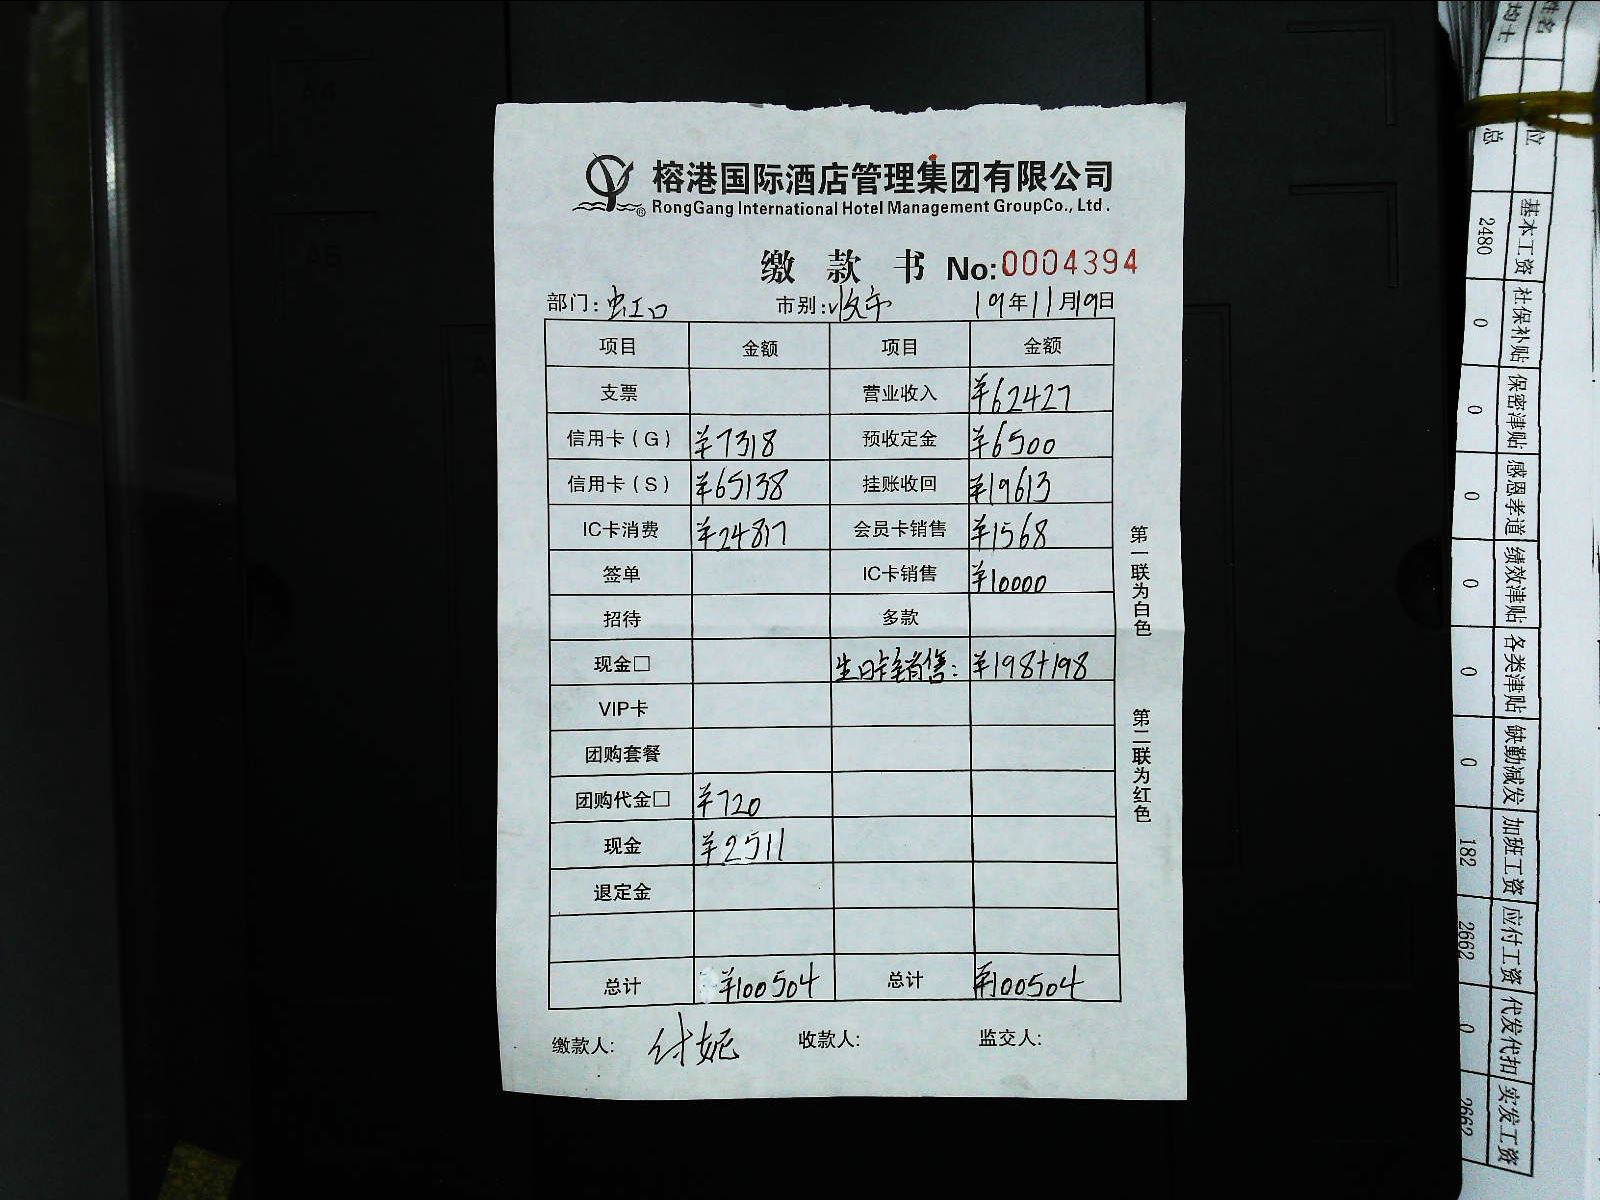 榕港国际酒店管理集团有限公司
RongGang International Hotel Management GroupCo., Ltd.
缴款书 No:0004394
部门: 虹口 市别: 收市 19年11月19日
项目 金额 项目 金额
支票 营业收入 ¥62427
信用卡(G) ¥7318 预收定金 ¥6500
信用卡(S) ¥65138 挂账收回 ¥19613
IC卡消费 ¥24817 会员卡销售 ¥1568
签单 IC卡销售 ¥10000
招待 多款
现金□ 生日卡销售: ¥198+198
VIP卡
团购套餐
团购代金□ ¥720
现金 ¥2511
退定金
总计 ¥100504 总计 ¥100504
缴款人: 付妮 收款人: 监交人:
第一联为白色
第二联为红色
姓名
位 总
基本工资 2480
社保补贴 0
保密津贴 0
感恩孝道 0
绩效津贴 0
各类津贴 0
缺勤减发 0
加班工资 182
应付工资 2662
代发代扣 0
实发工资 2662
A4